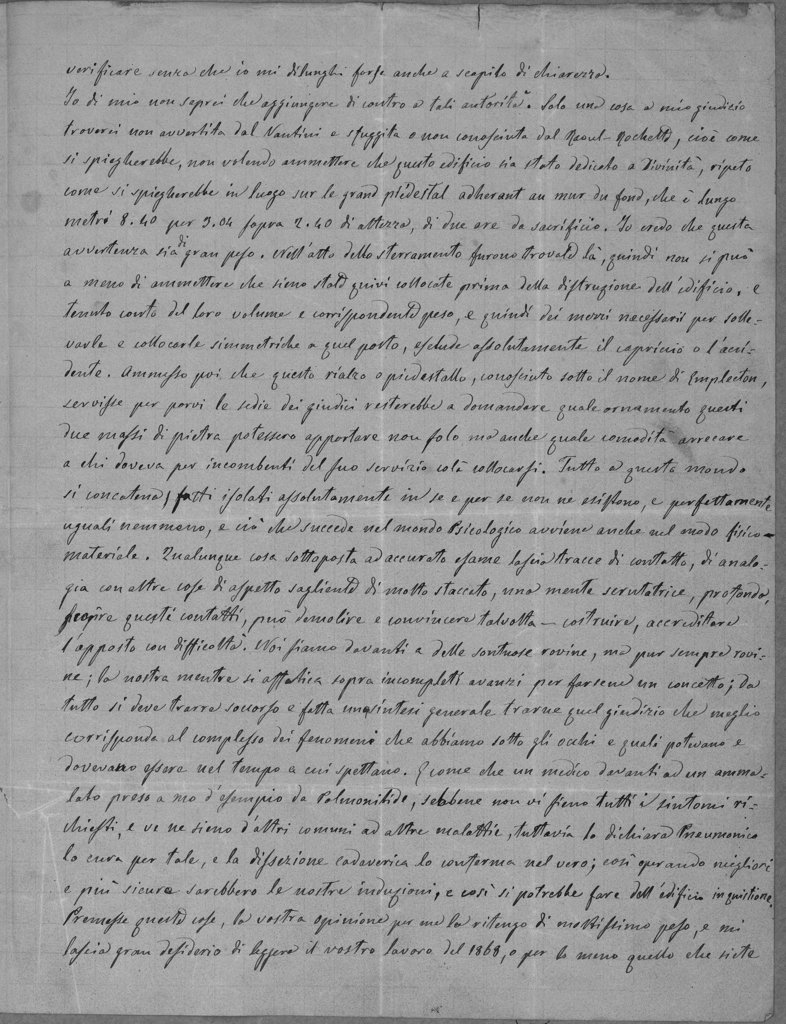 verificare senza che io mi dilunghi forse anche a scapito di chiarezza.
Io di mio non saprei che aggiungere di contro a tali autorità. Solo una cosa a mio giudicio
troverei non avvertita dal Vantini e sfuggita o non conosciuta dal Raoul-Rochette, cioè come
si spiegherebbe, non volendo ammettere che questo edificio sia stato dedicato a Divinità, ripeto
come si spiegherebbe in luogo sur le grand piédestal adherant au mur du fond, che è lungo
metri 8.40 per 3.04 sopra 2.40 di altezza, di due are da sacrificio. Io credo che questa
avvertenza sia di gran peso. Nell'atto dello sterramento furono trovate là, quindi non si può
a meno di ammettere che sieno state quivi collocate prima della distruzione dell'edificio, e
tenuto conto del loro volume e corrispondente peso, e quindi dei mezzi necessarii per solle-
varle e collocarle simmetriche a quel posto, esclude assolutamente il capriccio o l'acci-
dente. Ammesso poi che questo rialzo o piedestallo, conosciuto sotto il nome di Emplecton,
servisse per porvi le sedie dei giudici resterebbe a domandare quale ornamento questi
due massi di pietra potessero apportare non solo ma anche quale comodità arrecare
a chi doveva per incombenti del suo servizio colà collocarsi. Tutto a questo mondo
si concatena, fatti isolati assolutamente in se e per se non ne esistono, e perfettamente
uguali nemmeno, e ciò che succede nel mondo Psicologico avviene anche nel modo fisico-
materiale. Qualunque cosa sottoposta ad accurato esame lascia tracce di contatto, di analo-
gia con altre cose di aspetto sagliente di molto staccato, una mente scrutatrice, profonda,
scopre questi contatti, può demolire e convincere talvolta — costruire, accreditare
l'apposto con difficoltà. Noi siamo davanti a delle sontuose rovine, ma pur sempre rovi-
ne; la nostra mentre si affatica sopra incompleti avanzi per farsene un concetto; da
tutto si deve trarre soccorso e fatta una sintesi generale trarne quel giudizio che meglio
corrisponde al complesso dei fenomeni che abbiamo sotto gli occhi e quali potevano e
dovevano essere nel tempo a cui spettano. E come che un medico davanti ad un amma-
lato preso a mo' d'esempio da Polmonitide, sebbene non vi sieno tutti i sintomi ri-
chiesti, e ve ne sieno d'altri comuni ad altre malattie, tuttavia lo dichiara Pneumonico
lo cura per tale, e la dissezione cadaverica lo conferma nel vero; così operando migliori
e più sicure sarebbero le nostre induzioni, e così si potrebbe fare dell'edificio in quistione.
Premesse queste cose, la vostra opinione per me la ritengo di moltissimo peso, e mi
lascia gran desiderio di leggere il vostro lavoro del 1868, o per lo meno quello che siete